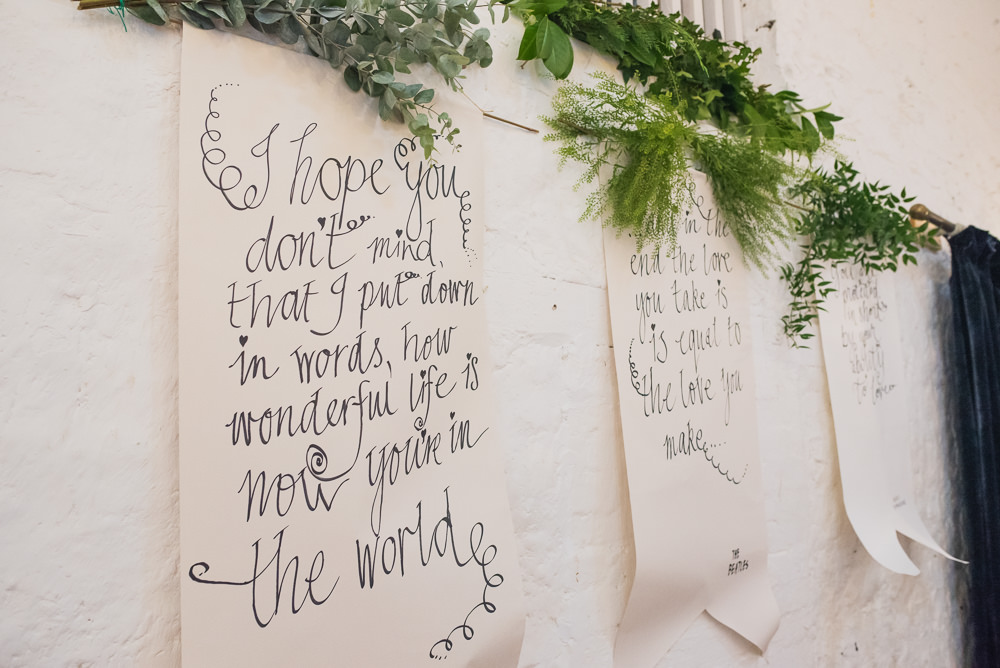 I hope you
don't mind,
that I put down
in words, how
wonderful life is
now you're in
the world
in the
end the love
you take is
is equal to
the love you
make....
THE
BEATLES
to love